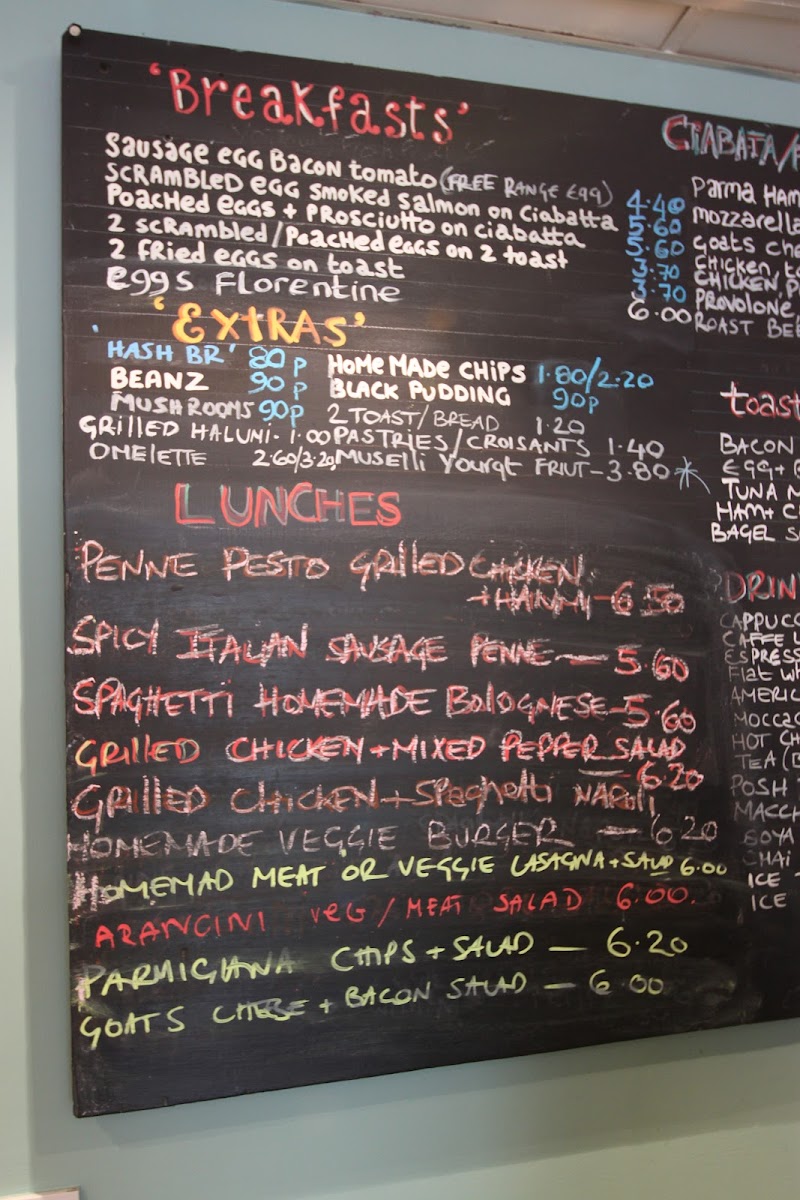 'Breakfasts'
Sausage egg Bacon tomato (FREE RANGE EGG) 4.40
SCRAMBLED egg smoked Salmon on Ciabatta 5.60
Poached eggs + PROSCIUTTO on ciabatta 5.60
2 scrambled/Poached eggs on 2 toast 3.70
2 fried eggs on toast 3.70
Eggs Florentine 6.00
'EXTRAS'
HASH BR' 80p HOMEMADE CHIPS 1.80/2.20
BEANZ 90p BLACK PUDDING 90p
MUSHROOMS 90p 2 TOAST/BREAD 1.20
GRILLED HALUMI - 1.00 PASTRIES/CROISANTS 1.40
OMElETTE 2.60/3.20 MUSElli Yourgt FRIUT - 3.80
LUNCHES
PENNE PESTO GRILLED CHICKEN
6.50
SPICY ITALIAN SAUSAGE PENNE — 5.60
SPAGHETTI HOMEMADE BOLOGNESE - 5.60
GRILLED CHICKEN + MIXED PEPPER SALAD
— 6.20
GRILLED CHICKEN + Spaghetti NAPOLI
HOMEMADE VEGGIE BURGER — 6.20
HOMEMAD MEAT OR VEGGIE LASAGNA + SALAD 6.00
ARANCINI VEG/MEAT SALAD 6.00.
PARMIGIANA CHIPS + SALAD — 6.20
GOATS CHESE + BACON SALAD — 6.00
CIABATA/
Parma HAM
mozzarella
Goats che
Chicken, to
CHICKEN, P
PROVOLONE,
ROAST BEE
toast
BACON
EGG +
TUNA M
HAM + C
BAGEL S
DRIN
CAPPUCC
CAFFE L
ESPRESS
Flat wh
AMERIC
MOCCAC
HOT CH
TEA (B
POSH
MACCH
SOYA
CHAI
ICE
ICE